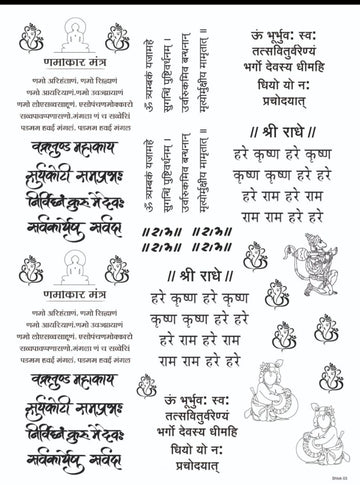 णमाकार मंत्र
णमो अरिहंताणं, णमो सिद्धाणं
णमो आयरियाणं, णमो उवज्झायाणं
णमो लोएसव्वसाहूणं, एसोपंचणमोक्कारो
सव्वपावप्पणासणो, मंगला णं च सव्वेसिं
पडमम हवई मंगलं
वक्रतुण्ड महाकाय
सूर्यकोटी समप्रभः
निर्विघ्नं कुरु मे देवः
सर्वकार्येषु सर्वदा
ॐ त्र्यम्बकं यजामहे
सुगन्धिं पुष्टिवर्धनम् ।
उर्वारुकमिव बन्धनान्
मृत्योर्मुक्षीय मामृतात् ॥
ॐ त्र्यम्बकं यजामहे
सुगन्धिं पुष्टिवर्धनम् ।
उर्वारुकमिव बन्धनान्
मृत्योर्मुक्षीय मामृतात् ॥
ऊं भूर्भुवः स्वः
तत्सवितुर्वरेण्यं
भर्गो देवस्य धीमहि
धियो यो नः
प्रचोदयात्
॥ श्री राधे ॥
हरे कृष्ण हरे कृष्ण
कृष्ण कृष्ण हरे हरे
हरे राम हरे राम
राम राम हरे हरे
॥राम॥ ॥राम॥
॥राम॥ ॥राम॥
णमाकार मंत्र
णमो अरिहंताणं, णमो सिद्धाणं
णमो आयरियाणं, णमो उवज्झायाणं
णमो लोएसव्वसाहूणं, एसोपंचणमोक्कारो
सव्वपावप्पणासणो, मंगला णं च सव्वेसिं
पडमम हवई मंगलं
वक्रतुण्ड महाकाय
सूर्यकोटी समप्रभः
निर्विघ्नं कुरु मे देवः
सर्वकार्येषु सर्वदा
॥ श्री राधे ॥
हरे कृष्ण हरे कृष्ण
कृष्ण कृष्ण हरे हरे
हरे राम हरे राम
राम राम हरे हरे
ऊं भूर्भुवः स्वः
तत्सवितुर्वरेण्यं
भर्गो देवस्य धीमहि
धियो यो नः
प्रचोदयात्